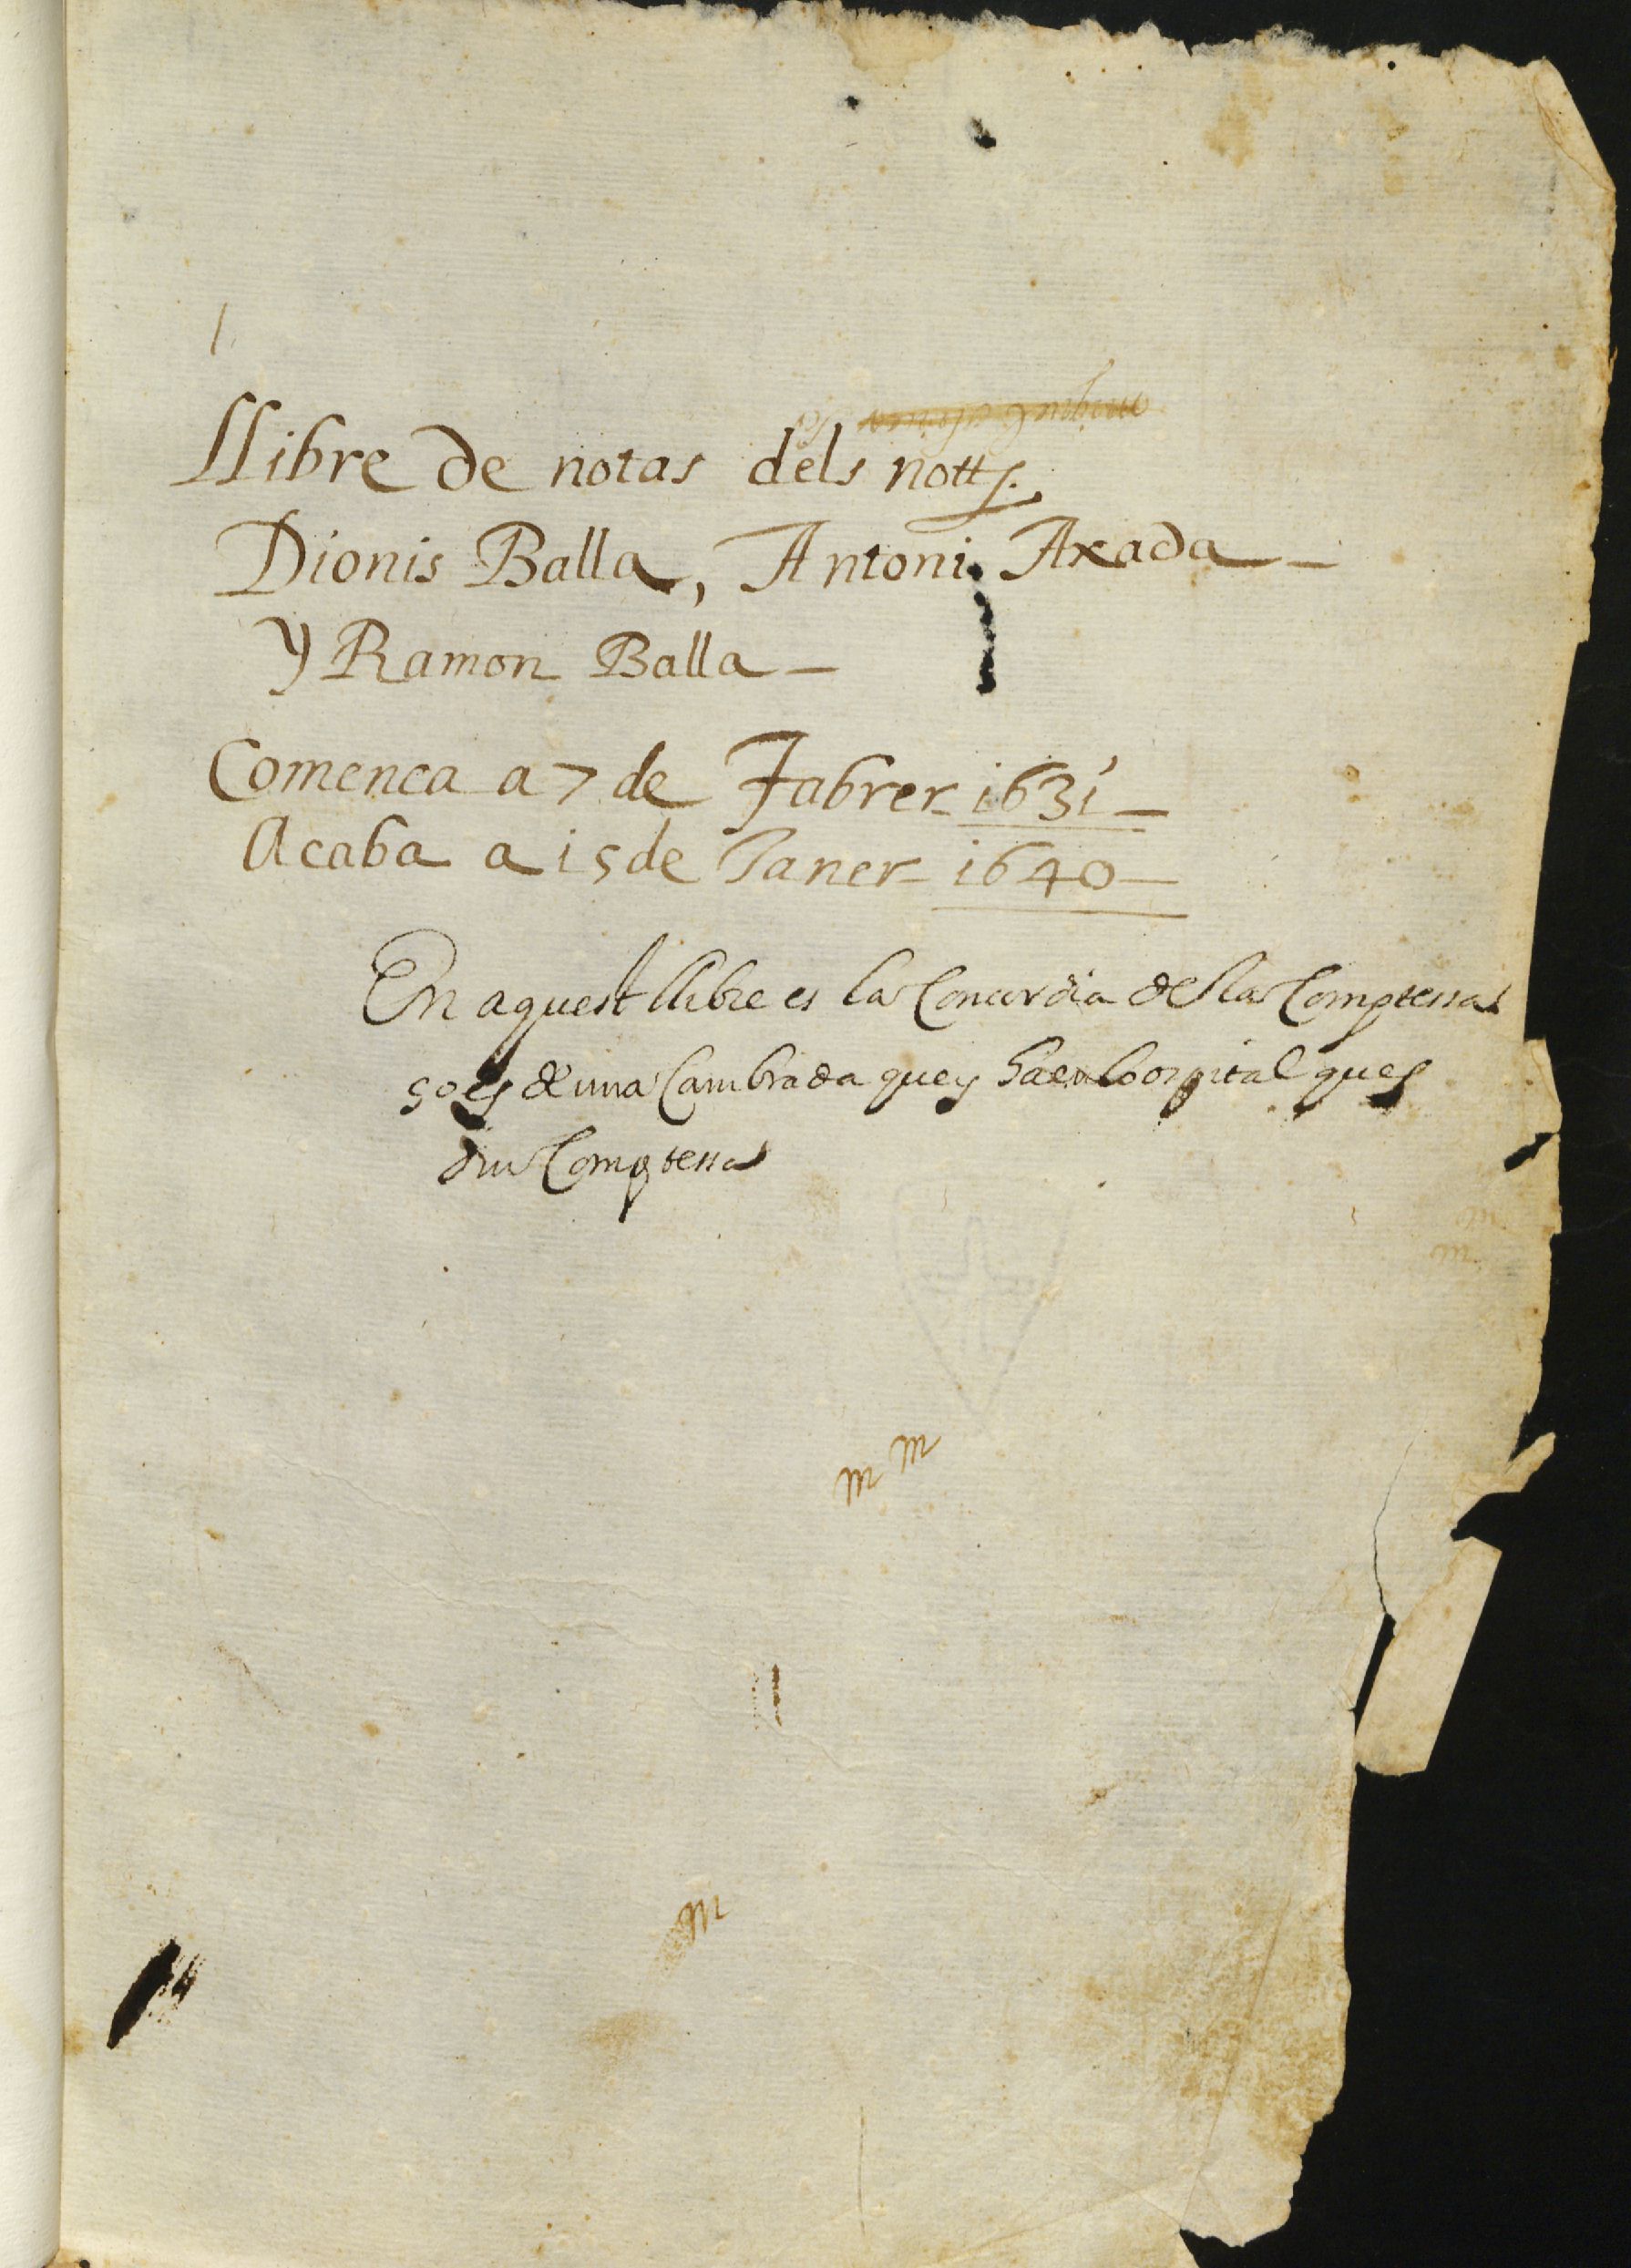 LLibre de notas dels nott.ˢ
Dionis Balla, Antoni Axada
y Ramon Balla
Comenca a 7 de Fabrer 1631
Acaba a 15 de Janer 1640
En aquest llibre es la Concordia de la Comptessa
ço es de una Cambrada quey ha en lospital ques
diu Comptessa
m m
m